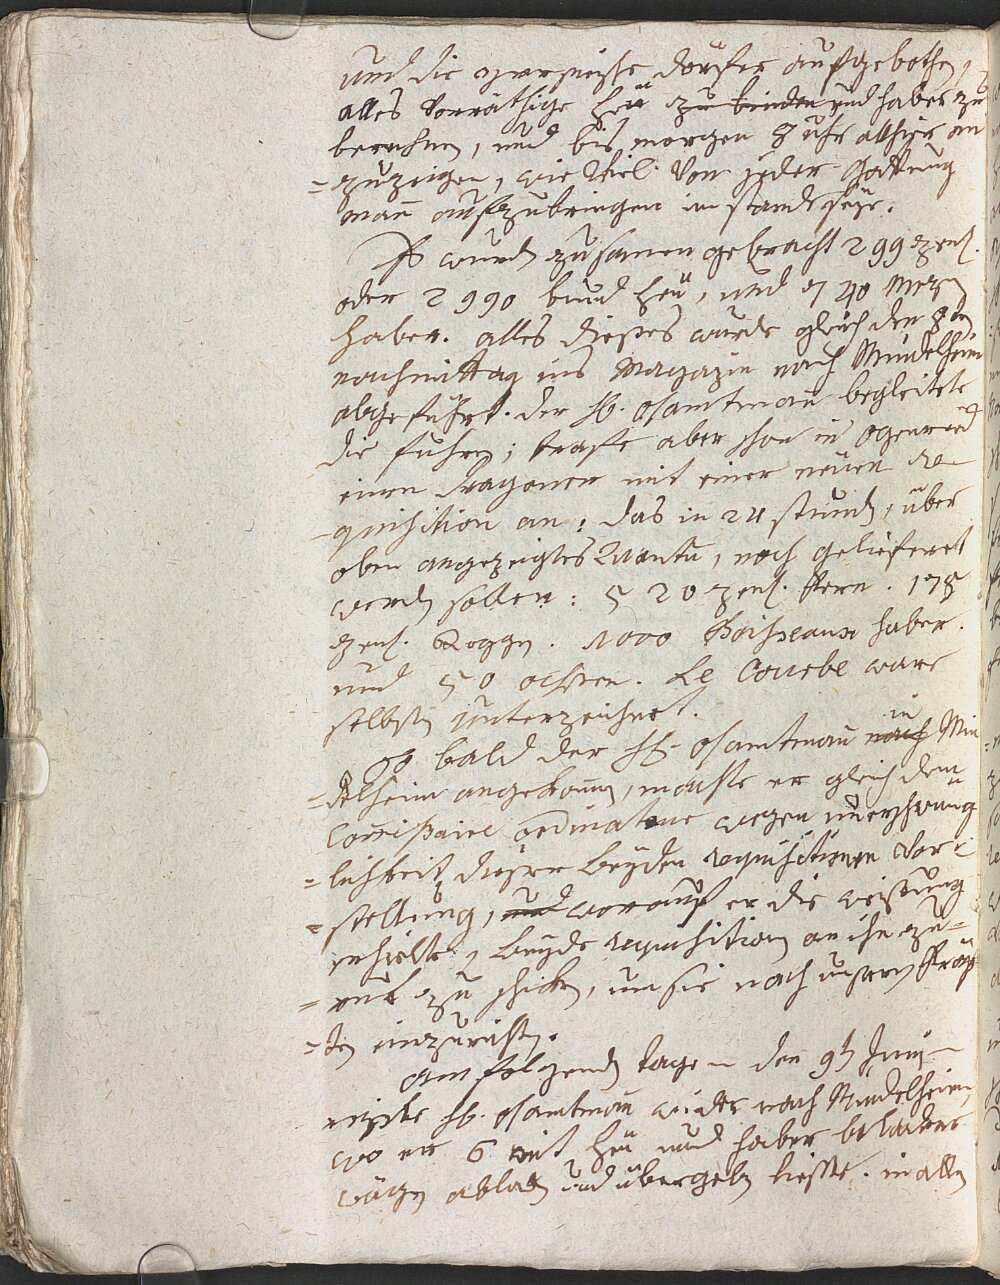 und die gereüthe dörfer aufgebothen,
alles Vorräthige Heü zu binden und haber zu
berechnen, und bis morgen 8 uhr allhier an
=zuzeigen, wie Viel Von jeder Gattung
man aufzubringen im stande seye.
Es wurden zusamen gebracht 299 zent.
oder 2990 bund Heü, und 740 Mezen
haber. alles dieses wurde gleich den 8ten
nachmittag ins Magazin nach Mindelheim
abgeführt. der H. osamtmañ begleitete
die fuhren; trafe aber schon in
einen Dragoner mit einer neüen Re-
quisition an, das in 24 stunden, über
oben angezeigtes Quantu, noch geliefert
werden sollen: 520 zent. Kern. 175
zent. Roggen. 1000 Boisseaux haber.
und 50 ochsen. Le Courbe ware
selbsten unterzeichnet.
So bald der H. osamtmañ nach in Min
=delheim angekomen, machte er gleich dem
Comissaire ordinateur wegen unerschwing
=lichkeit dieser beyden requisitionen Vor
=stellung, und worauf er die weisung
erhielte, beyde requisitionen an ihn zu=
=rük zu schicken, um sie nach unseren Kräf
=ten einzurichten.
Am folgenden tage den 9ten Junij
reyste H. osamtmañ wieder nach Mindelheim
wo er 6 mit Heü und haber beladene
wägen abladen und übergeben liesse. in allen